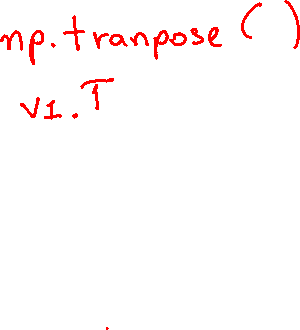 np.tranpose()
v1.T